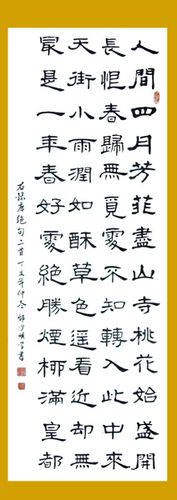 人間四月芳菲盡山寺桃花始盛開
長恨春歸無覓處不知轉入此中來
天街小雨潤如酥草色遙看近却無
冣是一年春好處絕勝煙柳滿皇都
右録唐絕句二首丁亥年仲冬少書